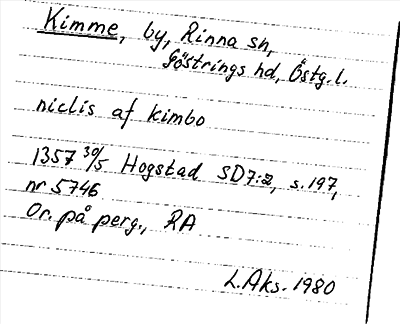 Kimme, by, Rinna sn,
Göstrings hd, Östg.l.
niclis af kimbo
1357 30/5 Hogstad SD7:2, s.197,
nr 5746
Or. på perg., RA
L.Aks. 1980